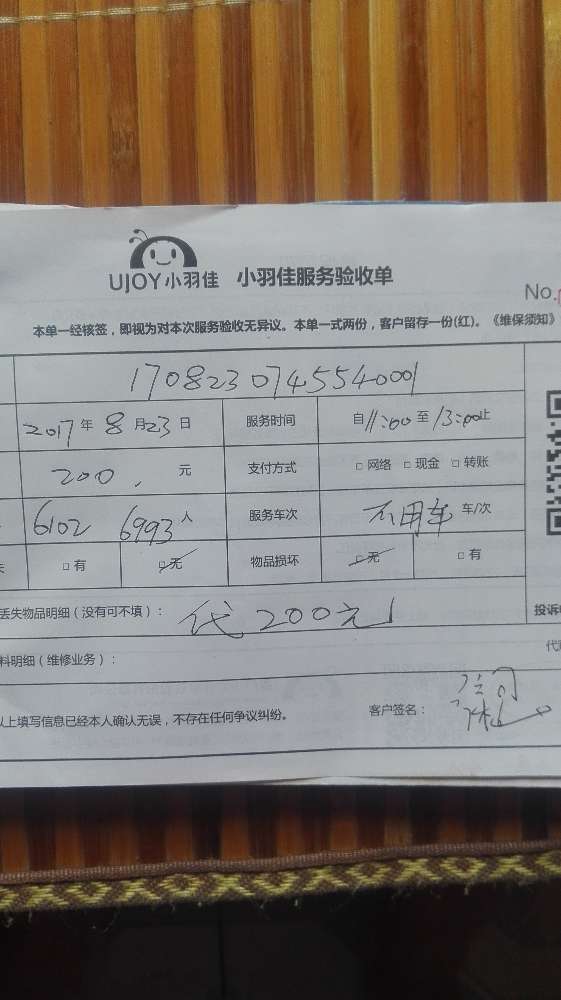 UJOY小羽佳 小羽佳服务验收单
No.
本单一经核签，即视为对本次服务验收无异议。本单一式两份，客户留存一份(红)。《维保须知》
1708230745540001
2017年8月23日 服务时间 自11:00至13:00止
200. 元 支付方式 □网络 □现金 □转账
6102 6993人 服务车次 不用车 车/次
□有 □无 物品损坏 □无 □有
丢失物品明细（没有可不填）： 代200元 投诉
料明细（维修业务）：
以上填写信息已经本人确认无误，不存在任何争议纠纷。 客户签名：